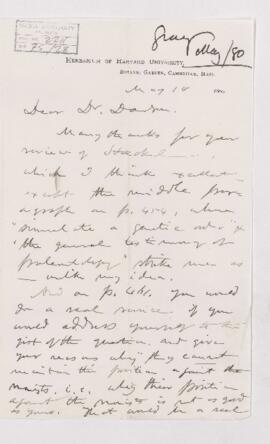 Gray
May/80
HERBARIUM OF HARVARD UNIVERSITY,
BOTANIC GARDEN, CAMBRIDGE, MASS.
May 18
Dear Dr. Dawson
Many thanks for your
review of Haeckel
which I think excellent
except the middle para
graph on p. 454, where
"simulate a genetic order" &
"the general testimony of
palaeontology" strike me as
— unlike my idea.
And on p. 461, you would
do a real service if you
would address yourself to the
gist of the question, and give
your reasons why they cannot
maintain this position against the
monists, i.e. why their position
against the monists is not as good
as yours. That would be a real